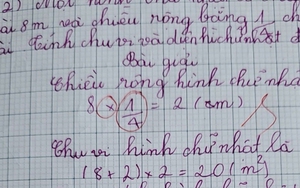 2) Một hình chữ nhật
dài 8m và chiều rộng bằng 1/4 ch
dài. Tính chu vi và diện hình chữ nhật đ
Bài giải
Chiều rộng hình chữ nhậ
8 × 1/4 = 2 (m)
Chu vi hình chữ nhật là
(8 + 2) × 2 = 20 (m²)